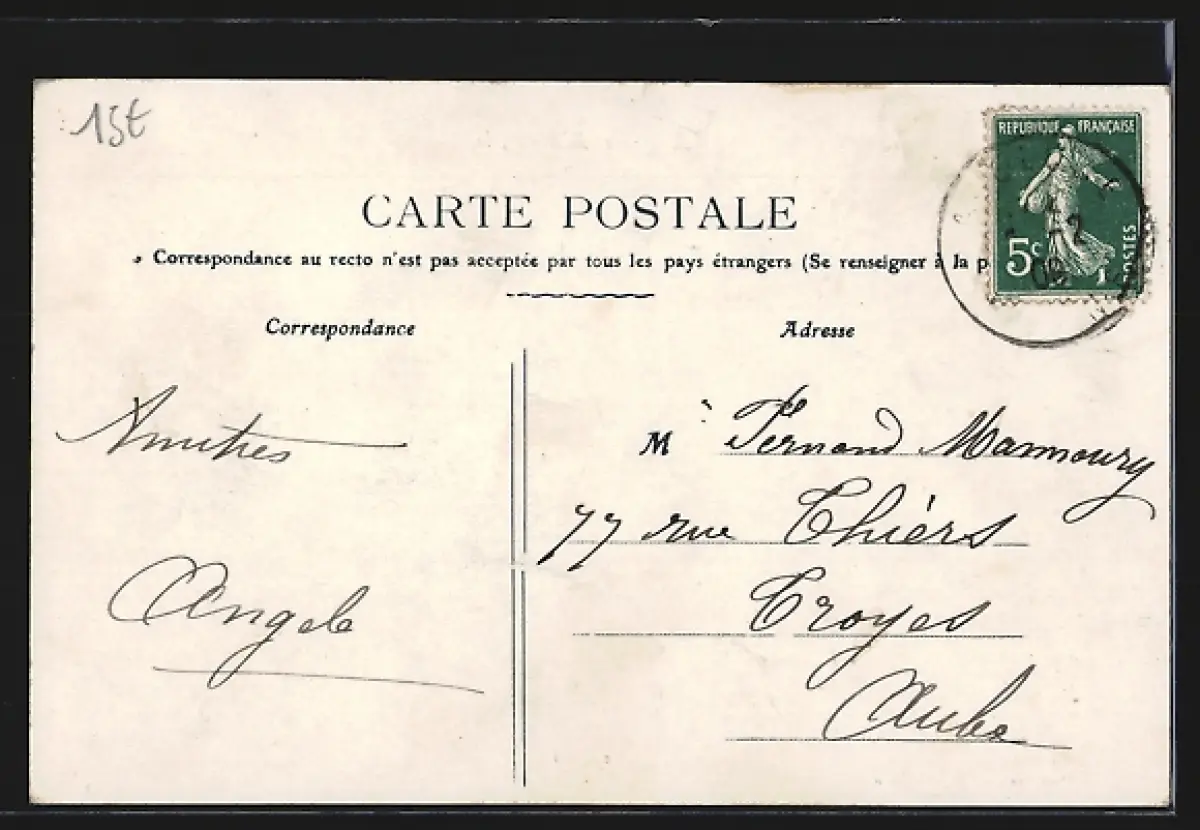 15t
REPUBLIQUE FRANÇAISE
5c
POSTES
CARTE POSTALE
Correspondance au recto n'est pas acceptée par tous les pays étrangers (Se renseigner à la p
Correspondance
Adresse
Amitiés
Angele
M Fernand Mannoury
77 rue Thiérs
Troyes
Aube